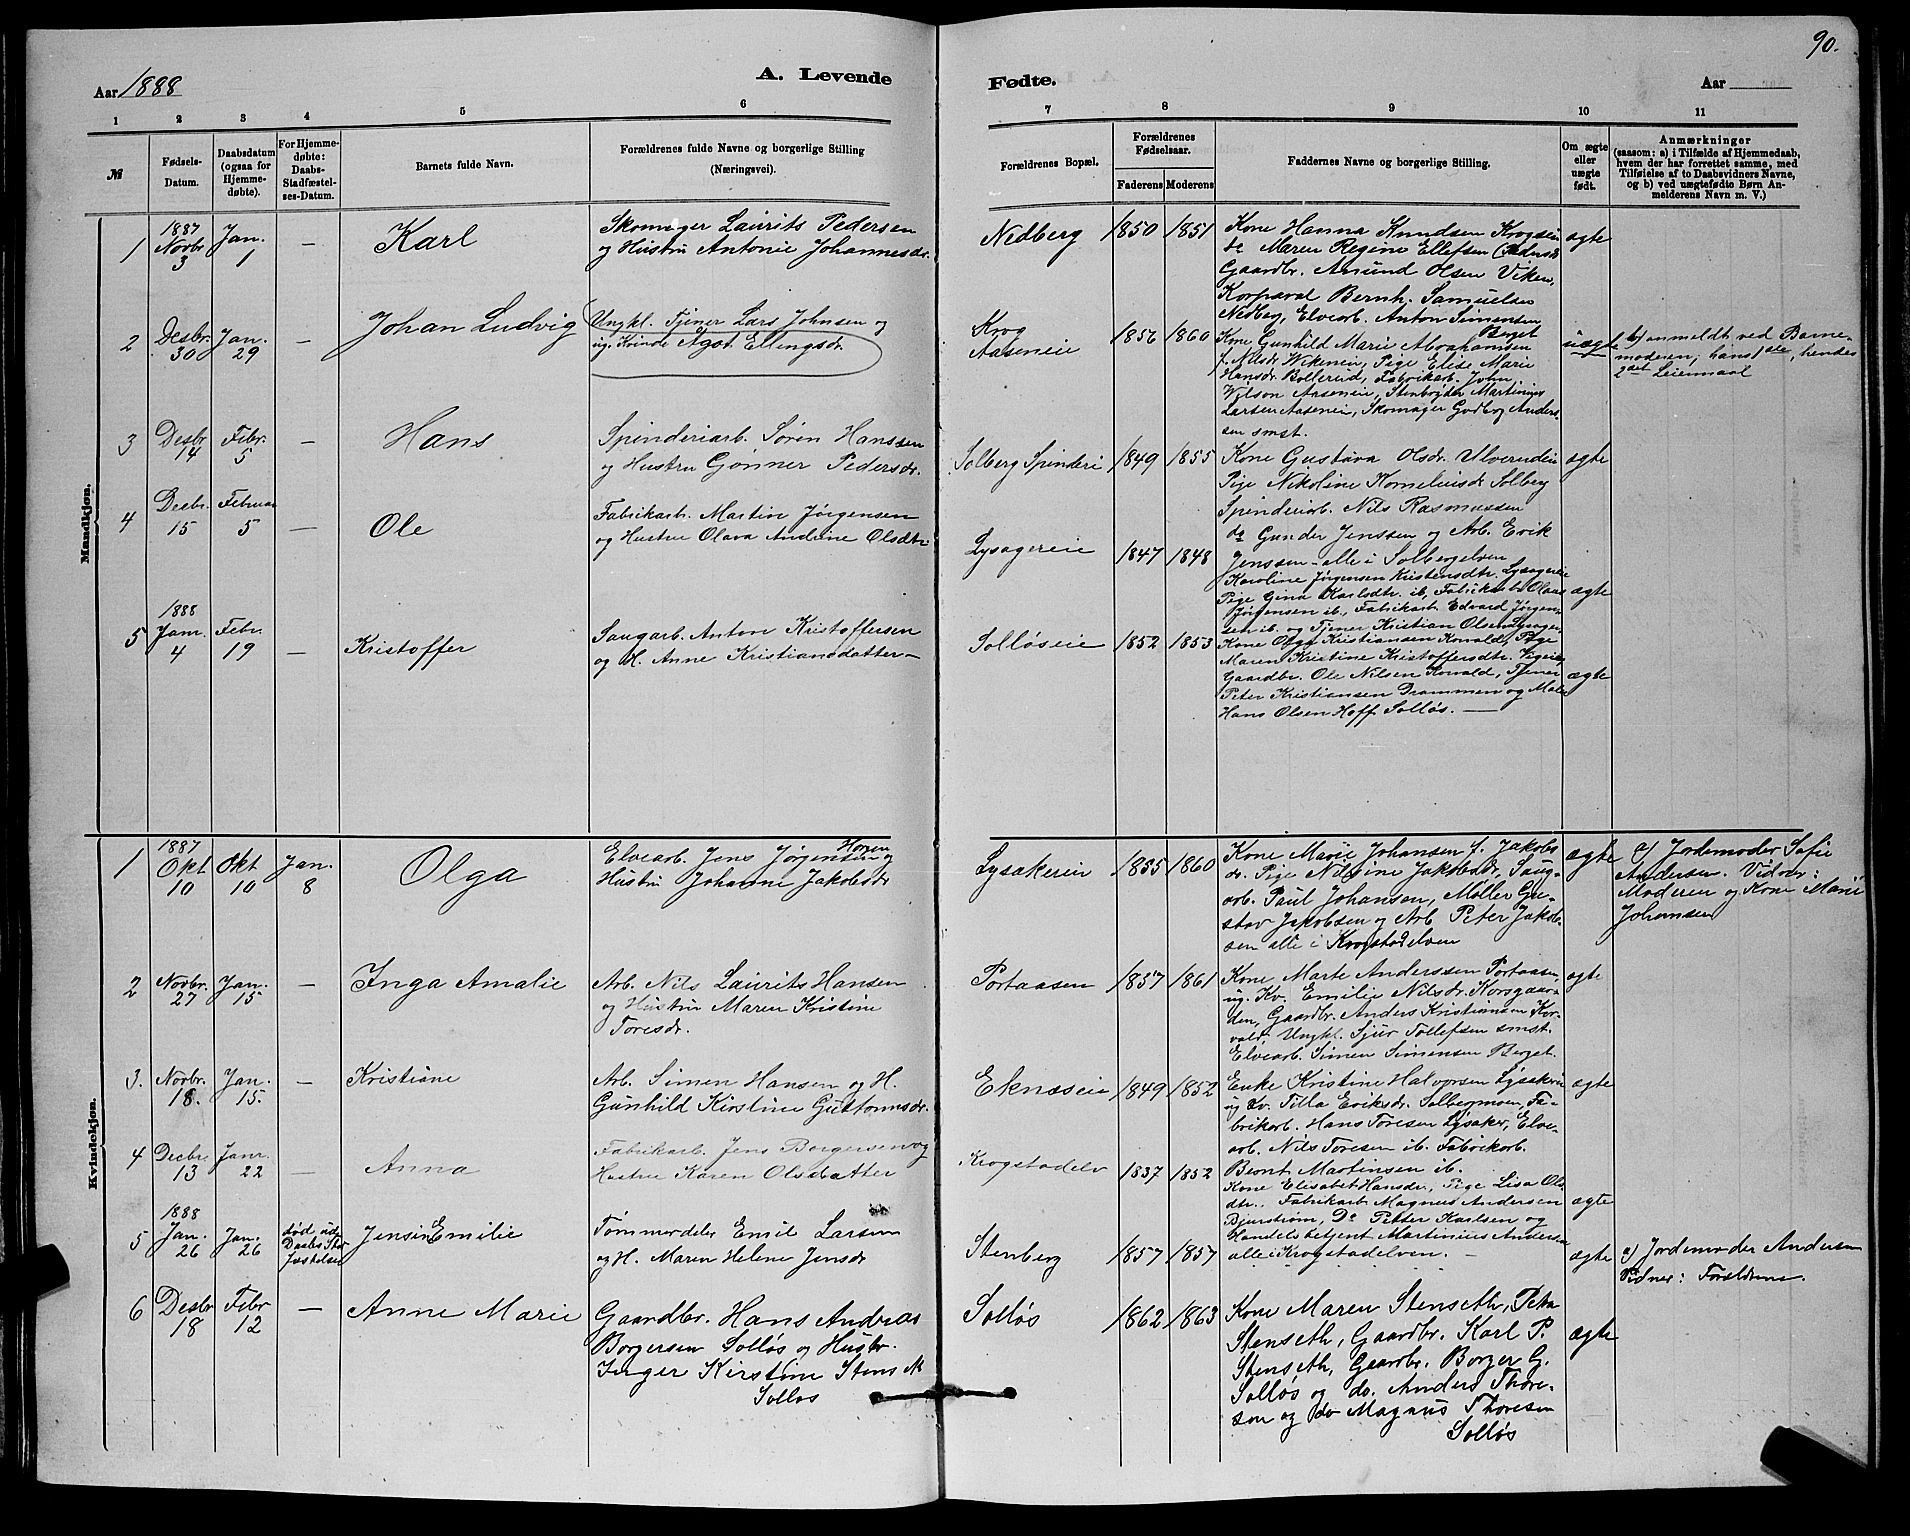 90.
Aar 1888
A. Levende
Fødte.
Aar
1 2 3 4 5 6 7 8 9 10 11
№
Fødsels-Datum.
Daabsdatum (ogsaa for Hjemmedøbte).
For Hjemmedøbte: Daabs-Stadfæstelses-Datum.
Barnets fulde Navn.
Forældrenes fulde Navne og borgerlige Stilling (Næringsvei).
Forældrenes Bopæl.
Forældrenes Fødselsaar.
Faderens Moderens
Faddernes Navne og borgerlige Stilling.
Om ægte eller uægte født.
Anmærkninger
(saasom: a) i Tilfælde af Hjemmedaab,
hvem der har forrettet samme, med
Tilføielse af to Daabsvidners Navne,
og b) ved uægtefødte Børn An-
melderens Navn m. V.)
Mandkjøn.
1 1887 Novbr. 3 Jan. 1 — Karl
Skomager Laurits Pedersen
og Hustru Antonie Johannesdr.
Nedberg 1850 1851
Kone Hanna Knudsen Krogseie
do Maren Regine Ellefsen
Gaardbr. Amund Olsen Viken,
Korporal Bernh. Samuelsen
Nedberg, Elvearb. Anton Simensen
Berget
ægte
2 Desbr. 30 Jan. 29 — Johan Ludvig
Ungkl. Tjener Lars Johnsen og
ug. Kvinde Agot Ellingsdr.
Krog
Aaseneie 1856 1860
Kone Gunhild Marie Abrahamsen
f. Nilsdr Vikeneie, Pige Elise Marie
Hansdr. Bollerud, Fabrikarb. John
Wilson Aaseneie, Stenbryder Martinius
Larsen Aaseneie, Skomager Gudbrg Anders-
sen smst.
uægte
b) anmeldt ved Barne-
moderen; hans 1ste, hendes
2det Leiermaal
3 Desbr. 14 Febr. 5 — Hans
Spinderiarb. Søren Hanssen
og Hustru Gønner Pedersdr.
Solberg Spinderi 1849 1855
Kone Gustava Olsdr. Ulverudeie
Pige Nikoline Korneliusdr Solberg
Spinderiarb. Nils Rasmussen
do Gunder Jenssen og Arb. Erik
Jenssen – alle i Solbergelven
ægte
4 Desbr. 15 Februar 5 — Ole
Fabrikarb. Martin Jørgensen
og Hustru Olava Andrine Olsdtr
Lysagereie 1847 1848
Karoline Jørgensen Kristensdtr. Lysagereie
Pige Gina Karlsdtr. ib, Fabrikarb. Olaus
Jørgensen ib., Fabrikarb. Edvard Jørgen-
sen ib. og Tjener Kristian Olsen Lysager.
ægte
5 1888 Jan. 4 Febr. 19 — Kristoffer
Saugarb. Anton Kristoffersen
og H. Anne Kristiansdatter –
Solløseie 1852 1853
Kone Olga Kristiansen Korvald, Pige
Maren Kristine Kristoffersdtr.
Gaardbr. Ole Nilsen Korvald, Tjener
Peter Kristiansen Drammen og Maler
Hans Olsen Hoff Solløs. —
ægte
Kvindekjøn.
1 1887 Okt 10 Okt 10 Jan. 8 Olga
Elvearb. Jens Jørgensen Horgen og
Hustru Johanne Jakobsdr
Lysakereie 1855 1860
Kone Marie Johansen f. Jakobs
dr. Pige Nilsine Jakobsdr, Saug-
arb. Paul Johansen, Møller Gu-
stav Jakobsen og Arb. Peter Jakob-
sen alle i Krogstadelven
ægte
a) Jordemoder Sofie
Andersen. Vidner:
Moderen og Kone Marie
Johansen
2 Novbr. 27 Jan. 15 — Inga Amalie
Arb. Nils Laurits Hansen
og Hustru Maren Kristine
Toresdr.
Portaasen 1857 1861
Kone Marte Anderssen Portaasen,
ug. Kv. Emilie Nilsdr. Korsgaar-
den, Gaardbr. Anders Kristiansen Kor-
vald, Ungkl. Sjur Tollefsen smst.
Elvearb. Simen Simensen Berget.
ægte
3. Novbr. 18. Jan. 15. — Kristiane
Arb. Simen Hansen og H.
Gunhild Kirstine Guttormsdr.
Eknæseie 1849 1852
Enke Kristine Halvorsen Lysakereie
ug Kv. Tilla Eriksdr. Solbergmoen, Fa-
brikarb. Hans Toresen Lysaker, Elve-
arb. Nils Toresen ib. Fabrikarb.
Bernt Martinsen ib.
ægte
4 Decbr 13 Janr. 22 — Anna
Fabrikarb. Jens Borgersen og
Hustru Karen Olsdatter
Krogstadelv 1837 1852
Kone Elisabet Hansdr., Pige Lisa Ols-
dtr., Fabrikarb. Magnus Andersen
Bjurstrøm, Do Petter Karlsen og
Handelsbetjent Martinius Andersen
alle i Krogstadelven. —
ægte
5 1888 Jan. 26 Jan. 26 død uden Daabs Stadfæstelse Jensin Emilie
Tømmerdeler Emil Larsen
og H. Maren Helene Jensdr
Stenberg 1857 1857
ægte
a) Jordemoder Andersen
Vidner: Forældrene.
6 Desbr 18 Febr 12 — Anne Marie
Gaardbr. Hans Andreas
Borgersen Solløs og Hustr.
Inger Kirstine Stenseth
Solløs
Solløs 1862 1863
Kone Maren Stenseth, Petra
Stenseth, Gaardbr. Karl P.
Stenseth, Gaardbr. Borger G.
Solløs og do. Anders Thore-
sen og do Magnus Thoresen
Solløs
ægte